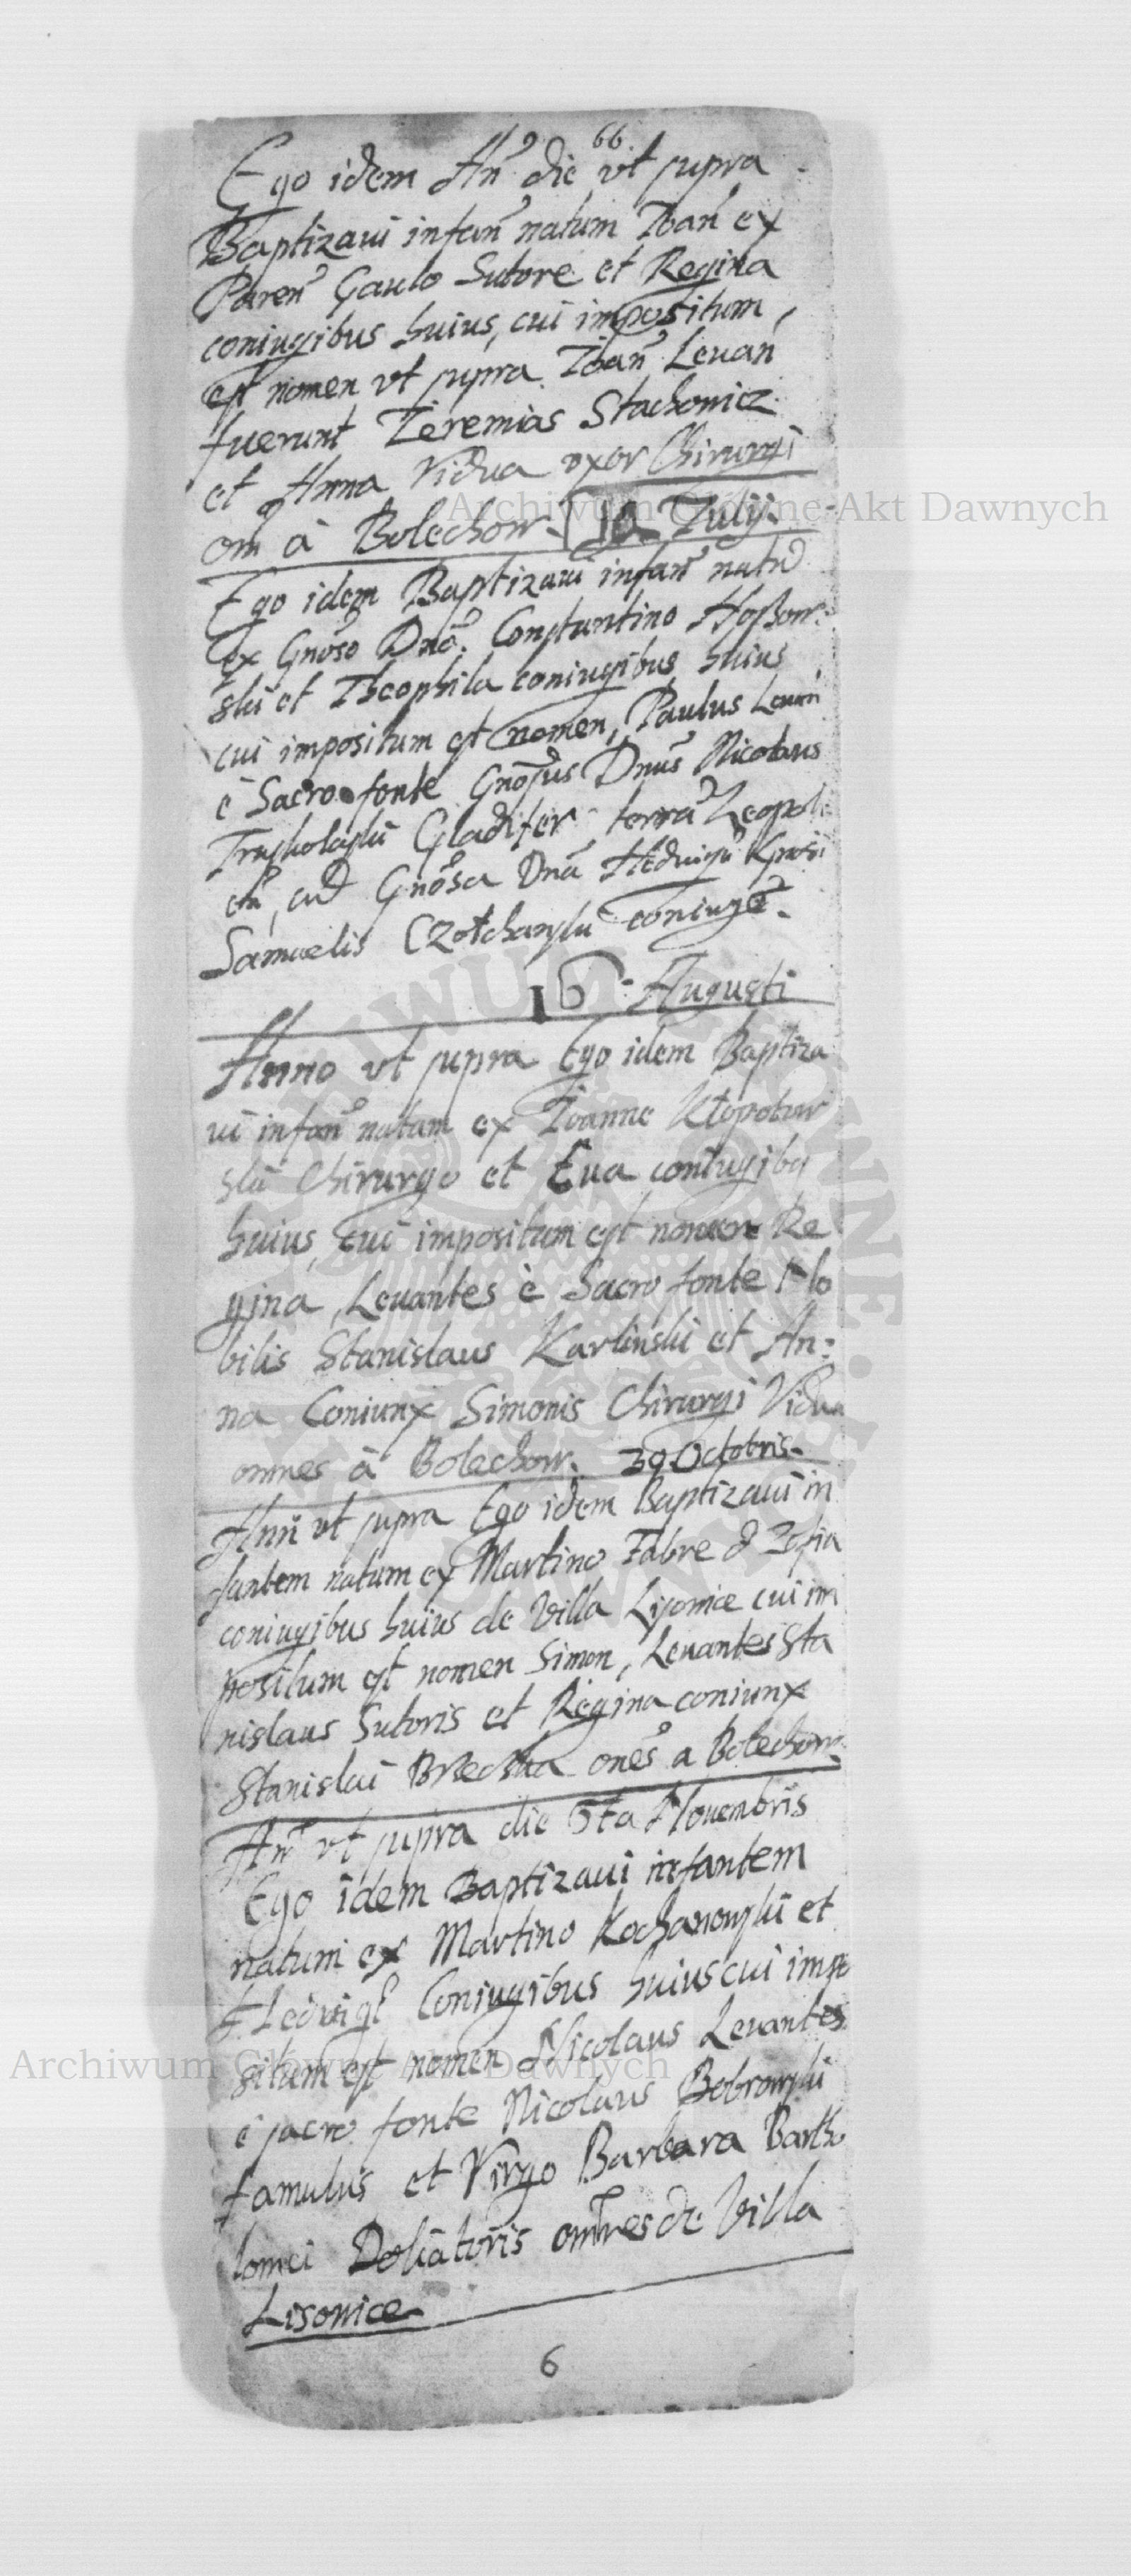 66.
Ego idem An̄ die vt supra
Baptizaui infan̄ natum Ioan̄ ex
Paren̄ Gaulo Sutore et Regina
coniugibus huius, cui impositum
est nomen vt supra Ioan̄ Leuan̄
fuerunt Ieremias Stachowicz
et Anna Vidua vxor Chirurgi
om̄ à Bolechow. 19 Iulij.
Ego idem Baptizaui infan̄ natū
ex Gnōso Dnō. Constantino Hoßow:
ski et Theophila coniugibus huius
cui impositum est nomen, Paulus Leuan̄
è Sacro fonte Gnōsus Dnūs Nicolaus
Gladifer terrā Leopoli
cū Gnōsa Dnā Heduigi Gnosi
Samuelis Czołchansku coniuge.
16. Augusti
Anno vt supra Ego idem Baptiza
ui infan̄ natam ex Ioanne Kłopotow
ski Chirurgo et Eua coniugibq
huius, cui impositum est nomen Re
gina, Leuantes è Sacro fonte No
bilis Stanislaus Karlinski et An:
na Coniunx Simonis Chirurgi Vidua
omnes à Bolechow. 39 Octobris.
Ann̄ vt supra Ego idem Baptizaui in
fantem natum ex Martino Fabre & Zofia
coniugibus huius de Villa Lisowice cui im
positum est nomen Simon, Leuantes Sta
nislaus Sutoris et Regina coniunx
Stanislai onēs a Bolechow.
An̄ vt supra die 5ta Nouembris
Ego idem Baptizaui infantem
natum ex Martino Kochanowski et
Hedvige Coniugibus huius cui impo
situm est nomen Nicolaus Leuantes
è sacro fonte Nicolaus Bobrowski
famulus et Virgo Barbara Bartho
lomei Doliatoris omnes de Villa
Lisowice
6
Archiwum Główne Akt Dawnych
Archiwum Główne Akt Dawnych